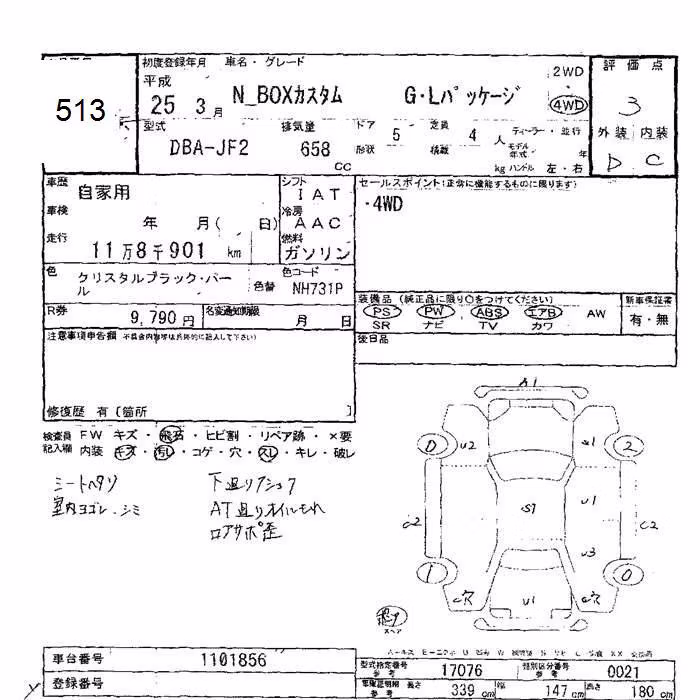 513
初度登録年月 車名・グレード
平成
25 3月 N_BOXカスタム G・Lパッケージ
2WD
4WD
評価点
3
外装 内装
D C
型式 排気量 ドア 5 定員 4人 ディーラー・並行
DBA-JF2 658 cc
形状 積載 kg モデル年式 年
ハンドル 左・右
車歴 自家用
車検 年 月( 日)
走行 11万8千901 km
シフト IAT
冷房 AAC
燃料 ガソリン
セールスポイント(正常に機能するものに限ります)
・4WD
色 クリスタルブラック・パール
色替
色コード NH731P
R券 9,790円 名変通知期限 月 日
装備品 (純正品に限り○をつけてください)
PS PW ABS エアB AW
SR ナビ TV カワ
新車保証書
有・無
後日品
注意事項申告欄 不具合内容等は具体的に記入して下さい)
修復歴 有〔箇所 〕
検査員記入欄
FW キズ・飛石・ヒビ割・リペア跡・×要
内装 キズ・汚レ・コゲ・穴・スレ・キレ・破レ
シートヘタリ
室内ヨゴレ・シミ
下廻り
AT廻りオイルもれ
ロアサポ歪
A1
0 U2 S1 2
C2 S7 U1 C2
U3
1 U1 0
スペア
車台番号 1101856
登録番号
型式指定番号 参考 17076 類別区分番号 参考 0021
車検証明細 参考 長さ 339 cm 幅 147 cm 高さ 180 cm